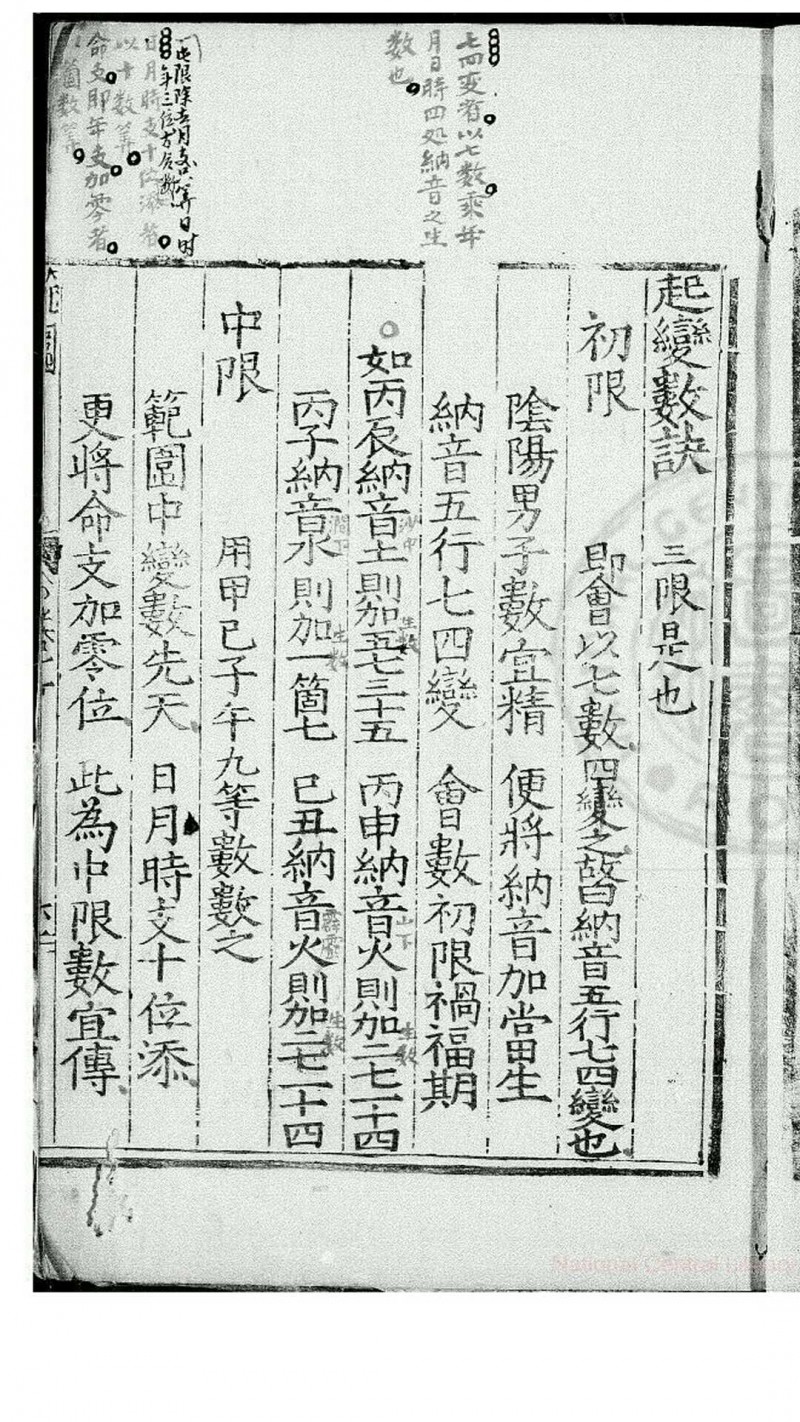 七四变者以七数乘年
月日時四処納音之生
数也
此限除去月支只算日时
年三位方合断
日月時支十位添者
以十数算
命支即年支加零者
箇数算
起變數訣 三限是也
初限 即會以七數四變之故曰納音五行七四變也
陰陽男子數宜精 便將納音加當生
納音五行七四變 會數初限禍福期
如丙辰納音土則加五七三十五 丙申納音火則加二七一十四
沙中 生数 山下 生数
丙子納音水則加一箇七 己丑納音火則加二七一十四
澗下 生数 霹靂 生数
中限 用甲己子午九等數數之
範圍中變數先天 日月時支十位添
更將命支加零位 此為中限數宜傳
National Central Library